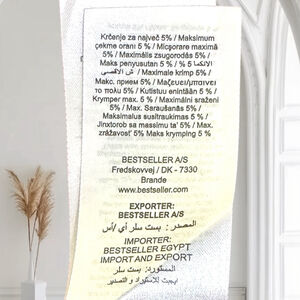 Krčenje za največ 5% / Maksimum
çekme oranı 5 % / Micşorare maximă
5% / Maximális zsugorodás 5% /
Maks penyusutan 5 % / % 5
/ Maximale krimp 5% /
Макс. прием 5% / Μαζεύει/μπαίνει
το πολύ 5% / Kutistuu enintään 5 % /
Krymper max. 5 % / Maximální sražení
5% / Max. Saraušanās 5% /
Maksimalus susitraukimas 5 % /
Jinxtorob sa massimu ta' 5% / Max.
zrážavosť 5% Maks krymping 5 %
BESTSELLER A/S
Fredskovvej / DK - 7330
Brande
www.bestseller.com
EXPORTER:
BESTSELLER A/S
المصدر: بست سلر أي/أس
IMPORTER:
BESTSELLER EGYPT
IMPORT AND EXPORT
المستورد: بست سلر
ايجبت للإستيراد و التصدير